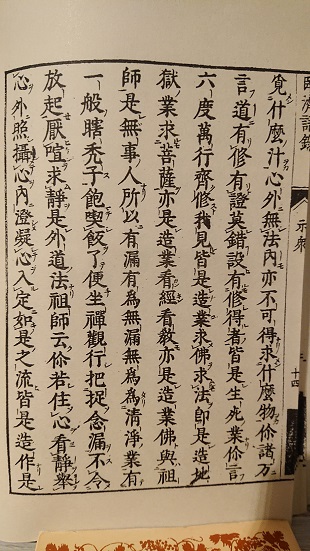 臨濟語錄
示衆
十四
覓什麼汁心外無法内亦不可得求什麼物你諸方
言道有修有證莫錯設有修得者皆是生死業你言
六度萬行齊修我見皆是造業求佛求法即是造地
獄業求菩薩亦是造業看經看教亦是造業佛與祖
師是無事人所以有漏有爲無漏無爲爲清淨業有
一般瞎禿子飽喫飯了便坐禪觀行把捉念漏不令
放起厭喧求靜是外道法祖師云你若住心看靜舉
心外照攝心内澄凝心入定如是之流皆是造作是